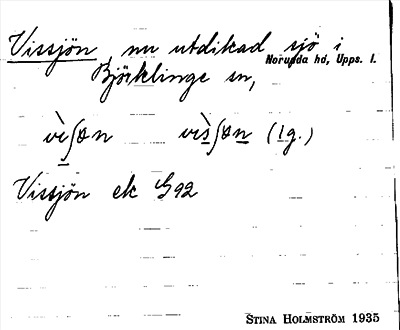 Vissjön, nu utdikad sjö i
Norunda hd, Upps. l.
Björklinge sn,
vὶʃøn vὶsʃøn (lg.)
Vissjön ek G92
STINA HOLMSTRÖM 1935